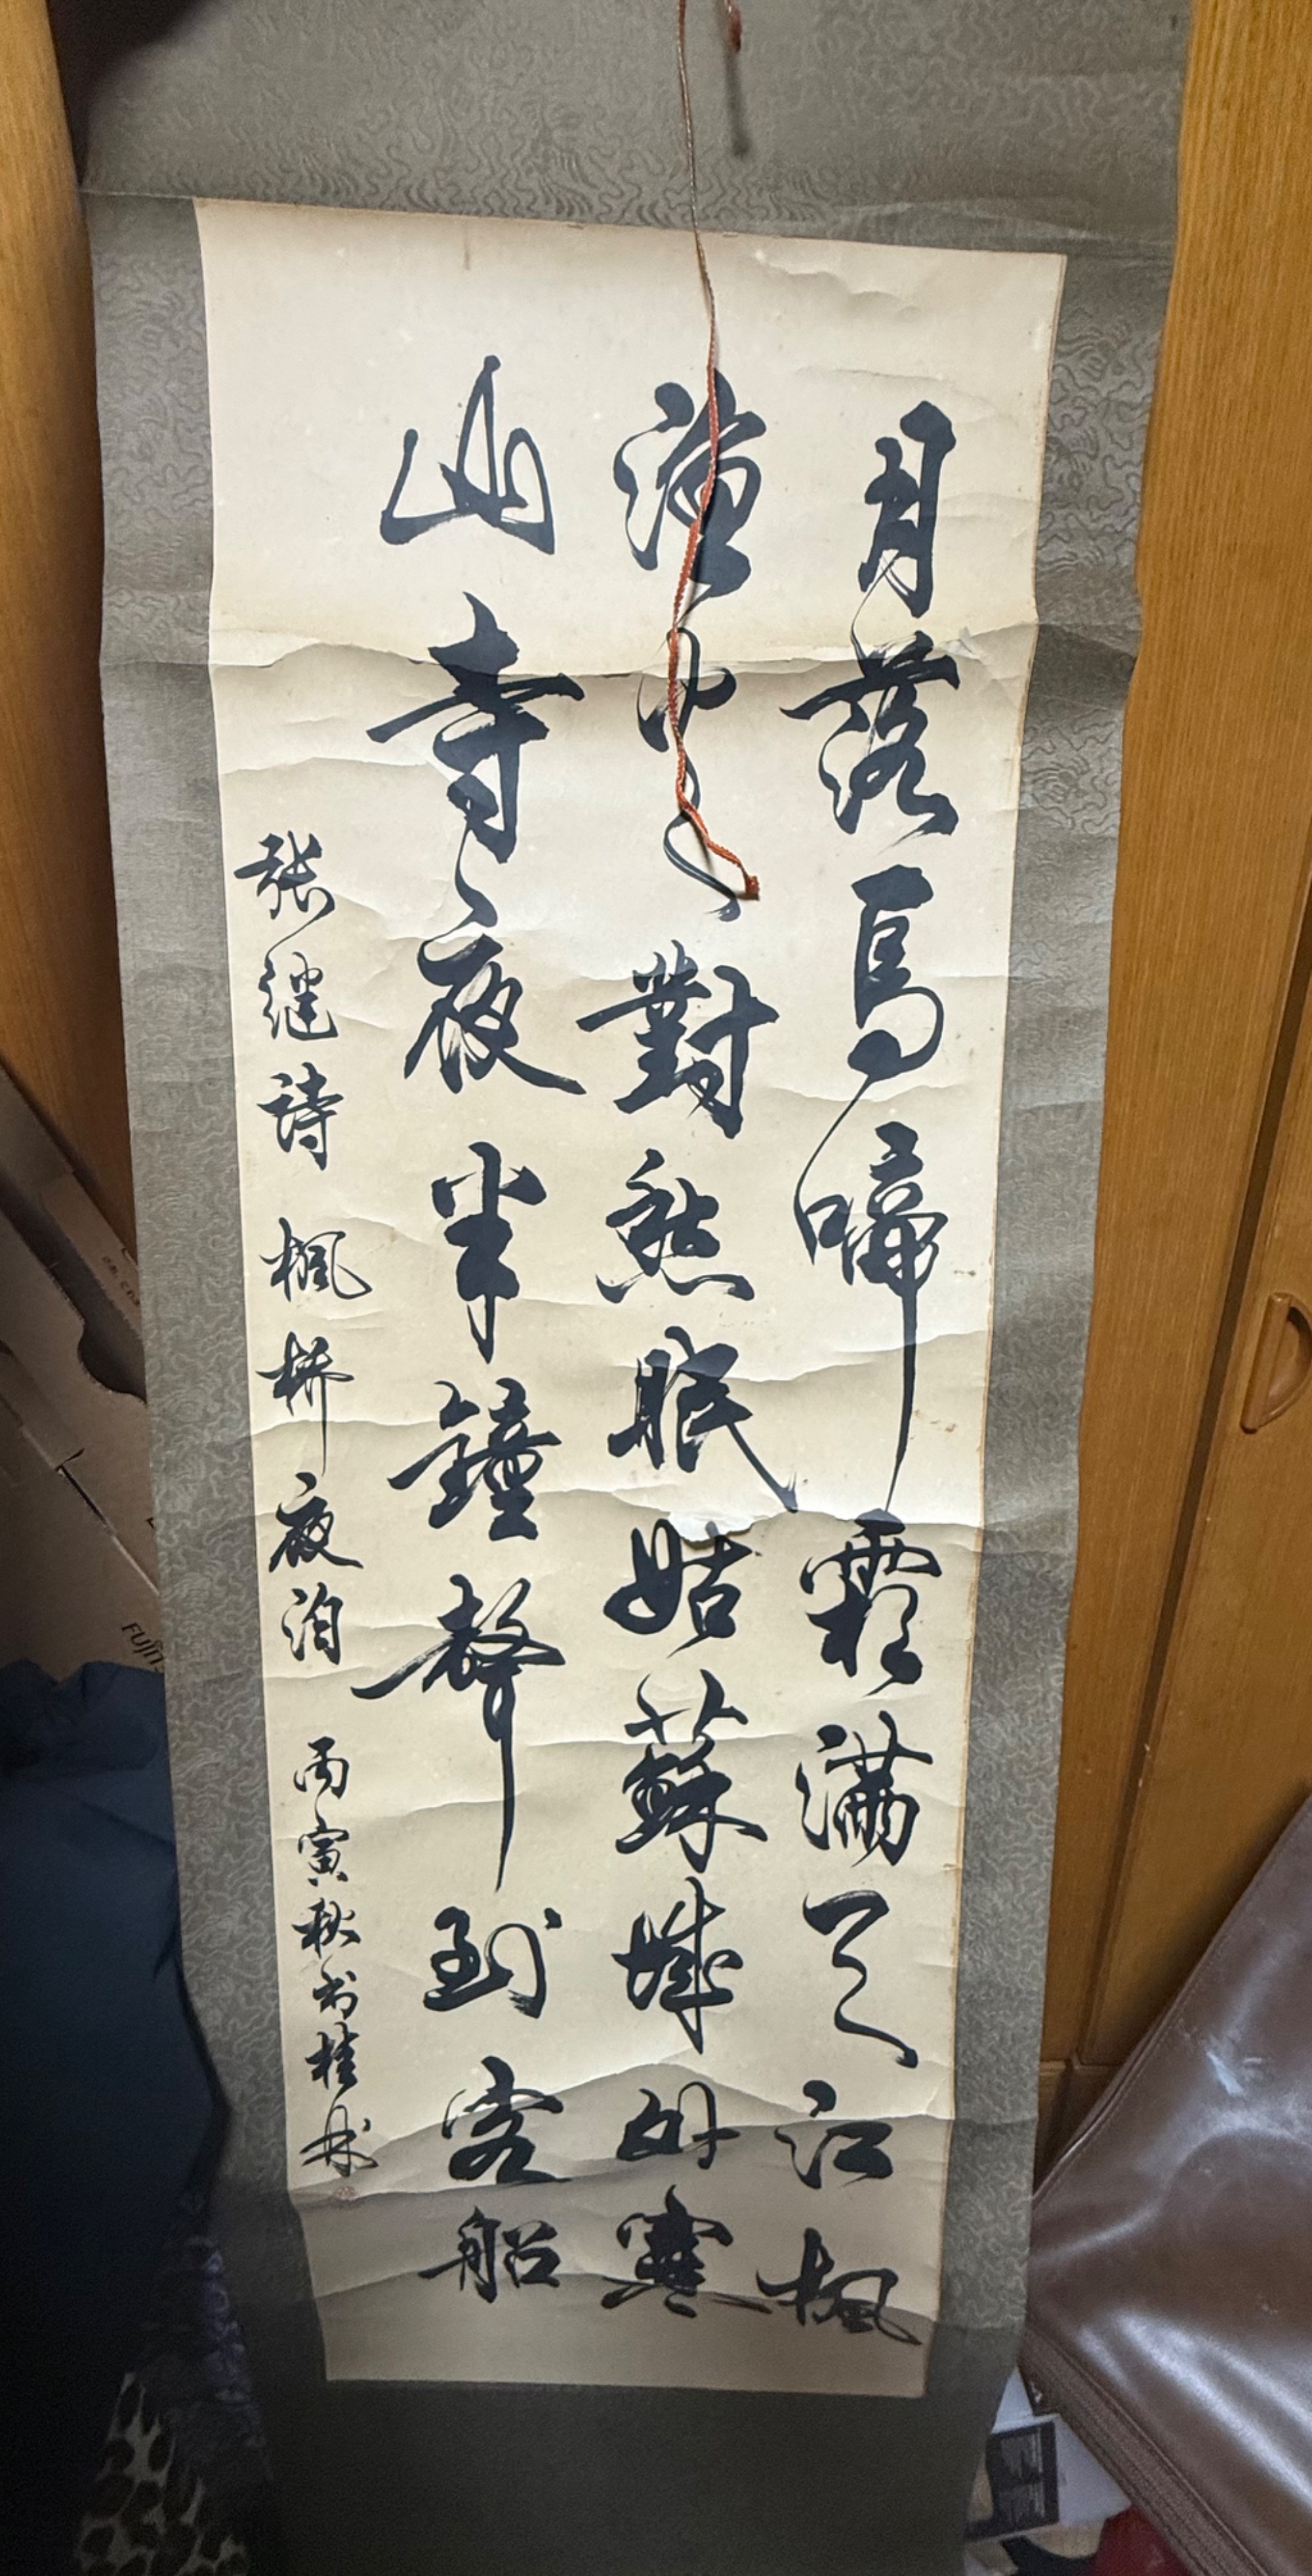 月落烏啼霜滿天江楓
漁火對愁眠姑蘇城外寒
山寺夜半鐘聲到客船
张继詩 楓桥夜泊 丙寅秋书桂林